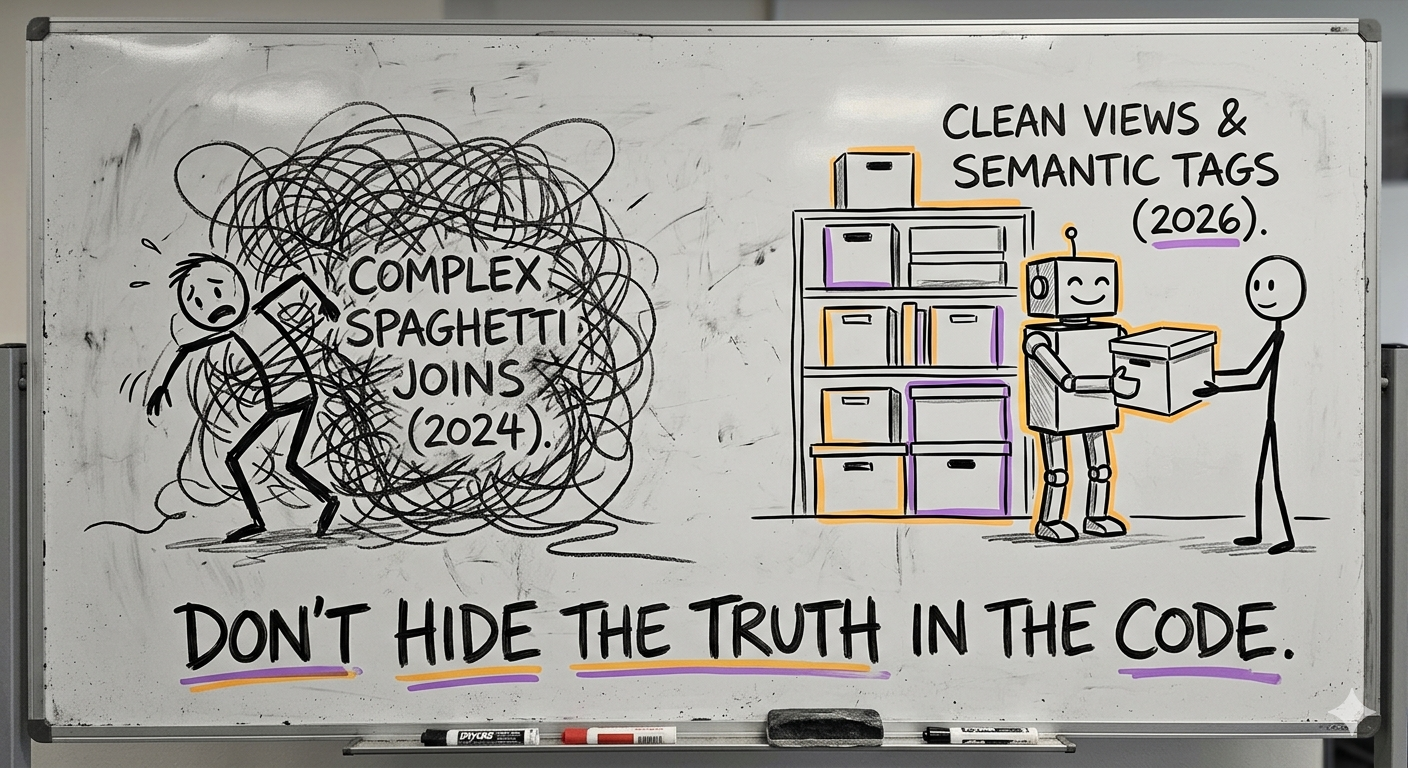 COMPLEX
SPAGHETTI
JOINS
(2024).
CLEAN VIEWS &
SEMANTIC TAGS
(2026).
DON'T HIDE THE TRUTH IN THE CODE.